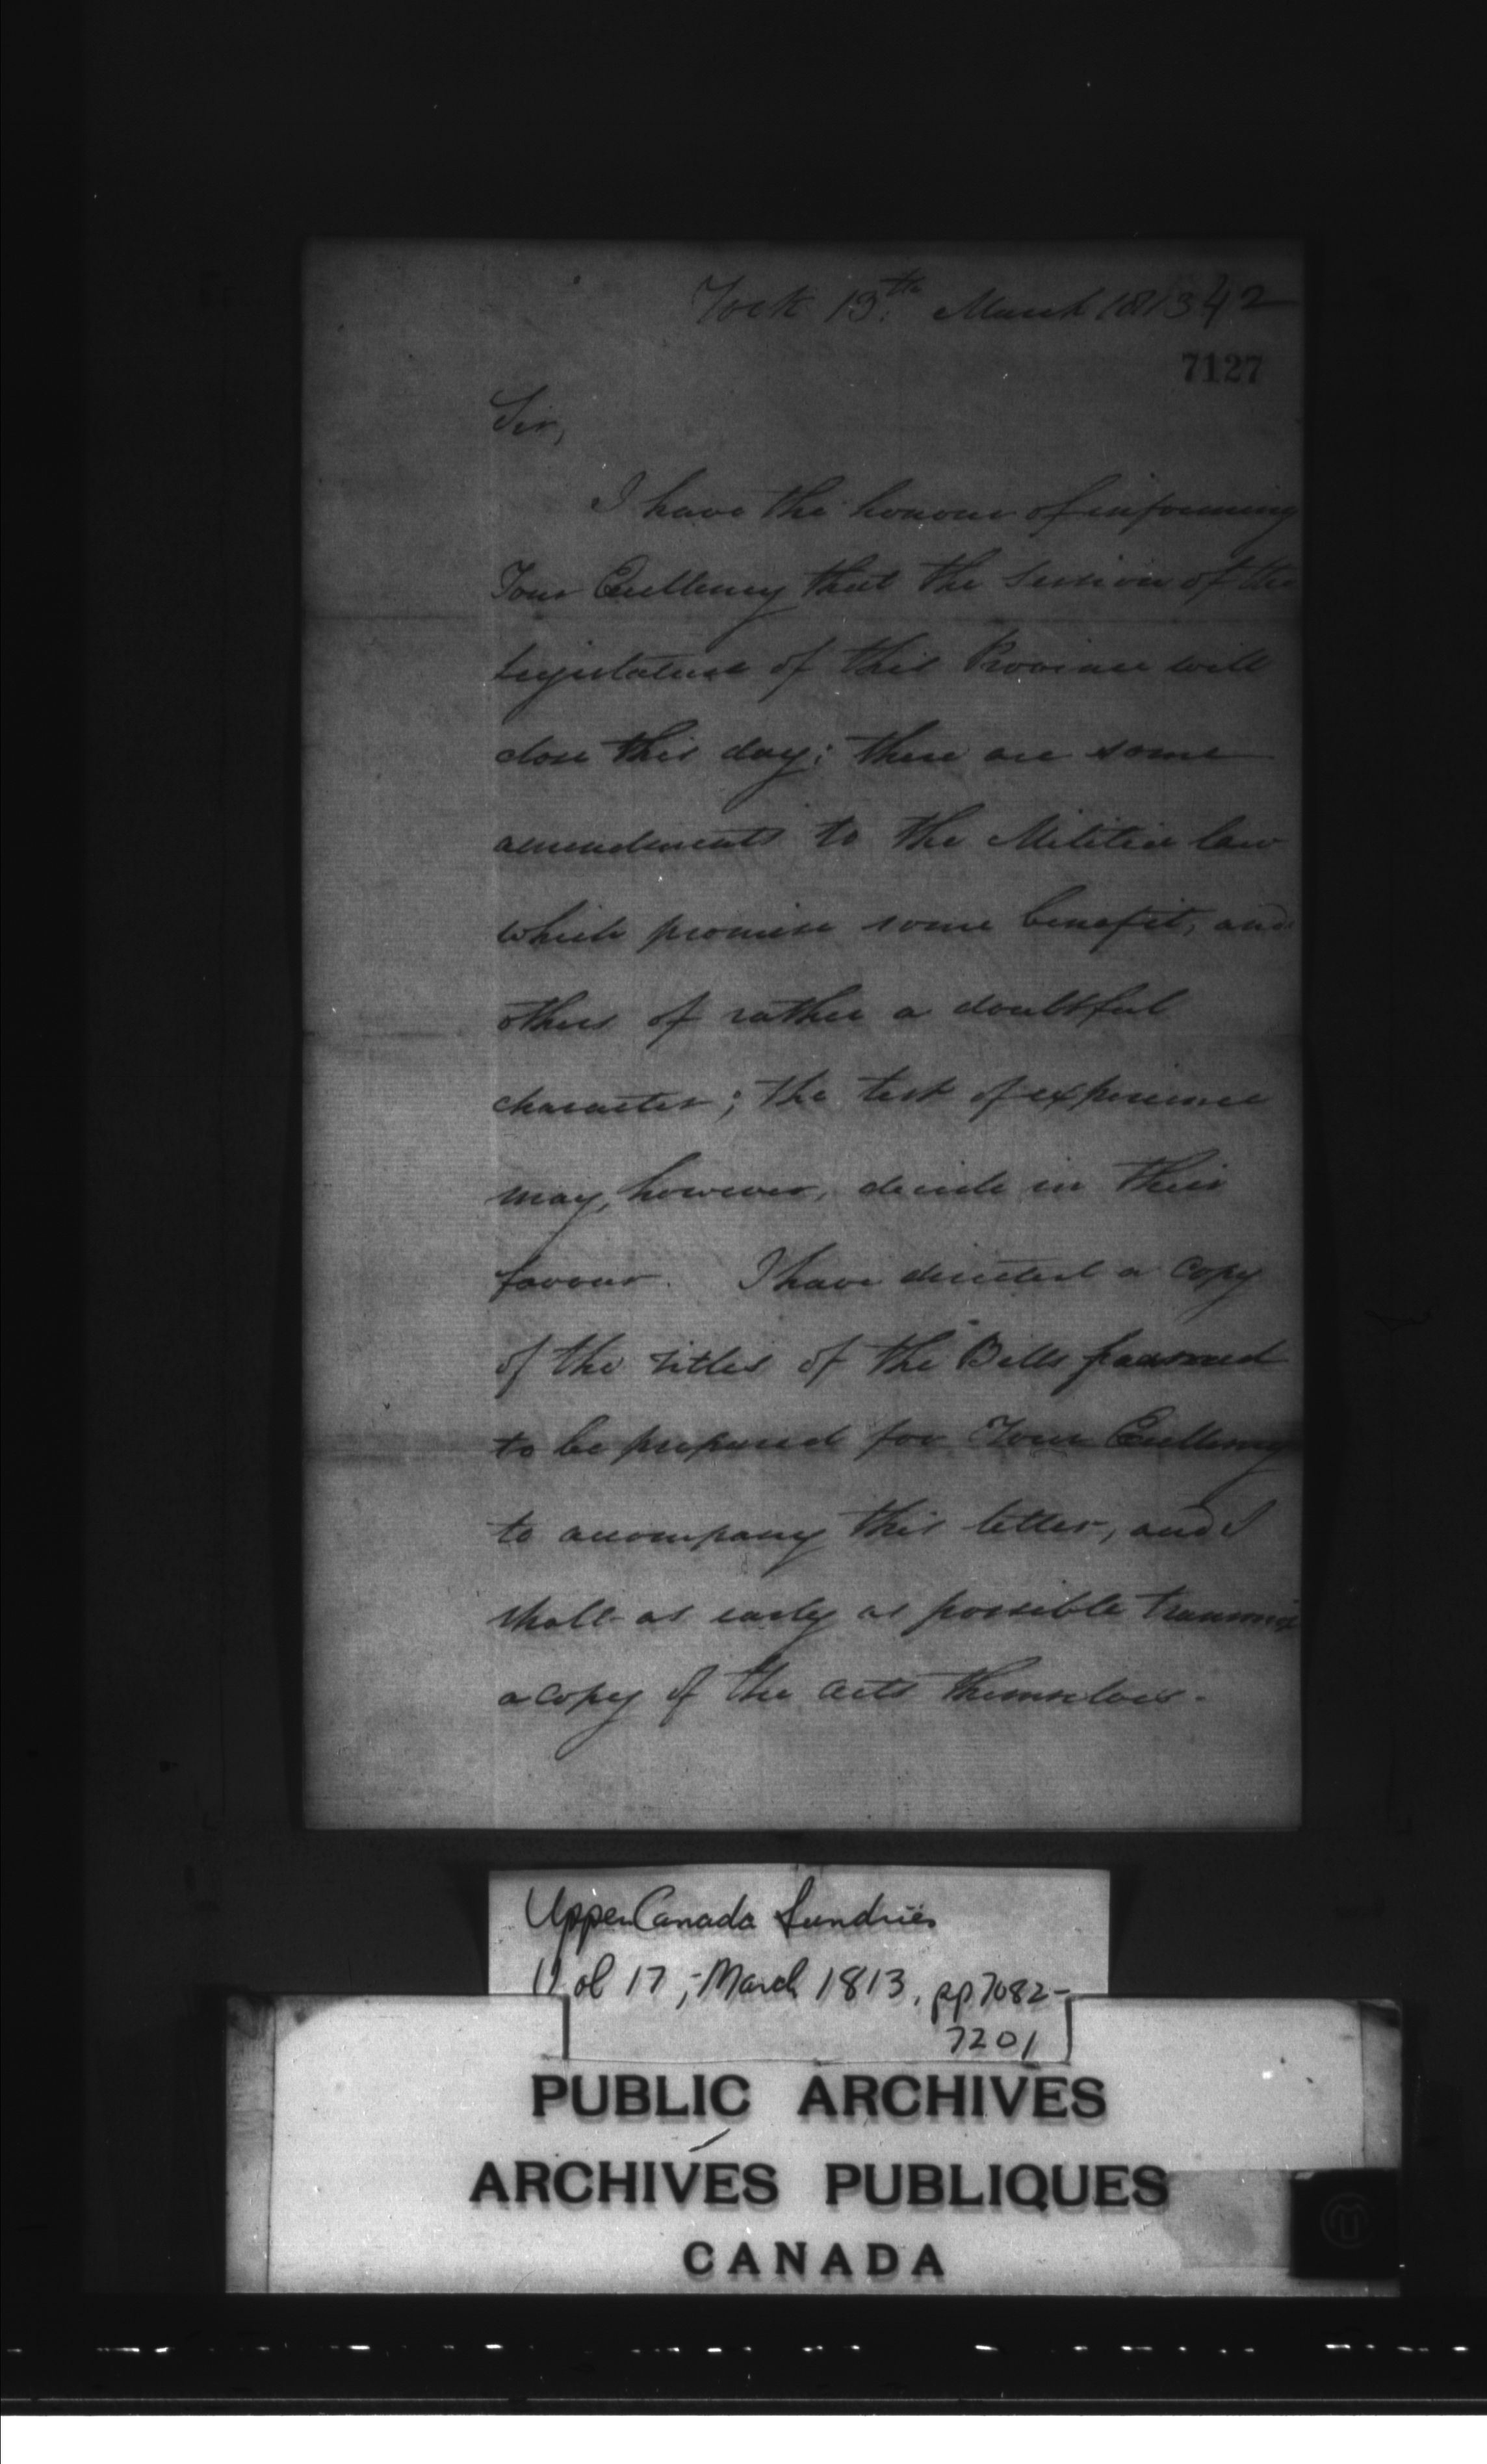 York 13th. March 1813 42
7127
Sir,
I have the honour of informing
Your Excellency that the Session of the
Legislature of this Province will
close this day; there are some
amendments to the Militia law
which promise some benefit, and
others of rather a doubtful
character; the test of experience
may, however, decide in their
favour. I have directed a copy
of the titles of the Bills passed
to be prepared for Your Excellency
to accompany this letter, and I
shall as early as possible transmit
a copy of the acts themselves.
Upper Canada Sundries
Vol 17, March 1813, pp 7082-
7201
PUBLIC ARCHIVES
ARCHIVES PUBLIQUES
CANADA